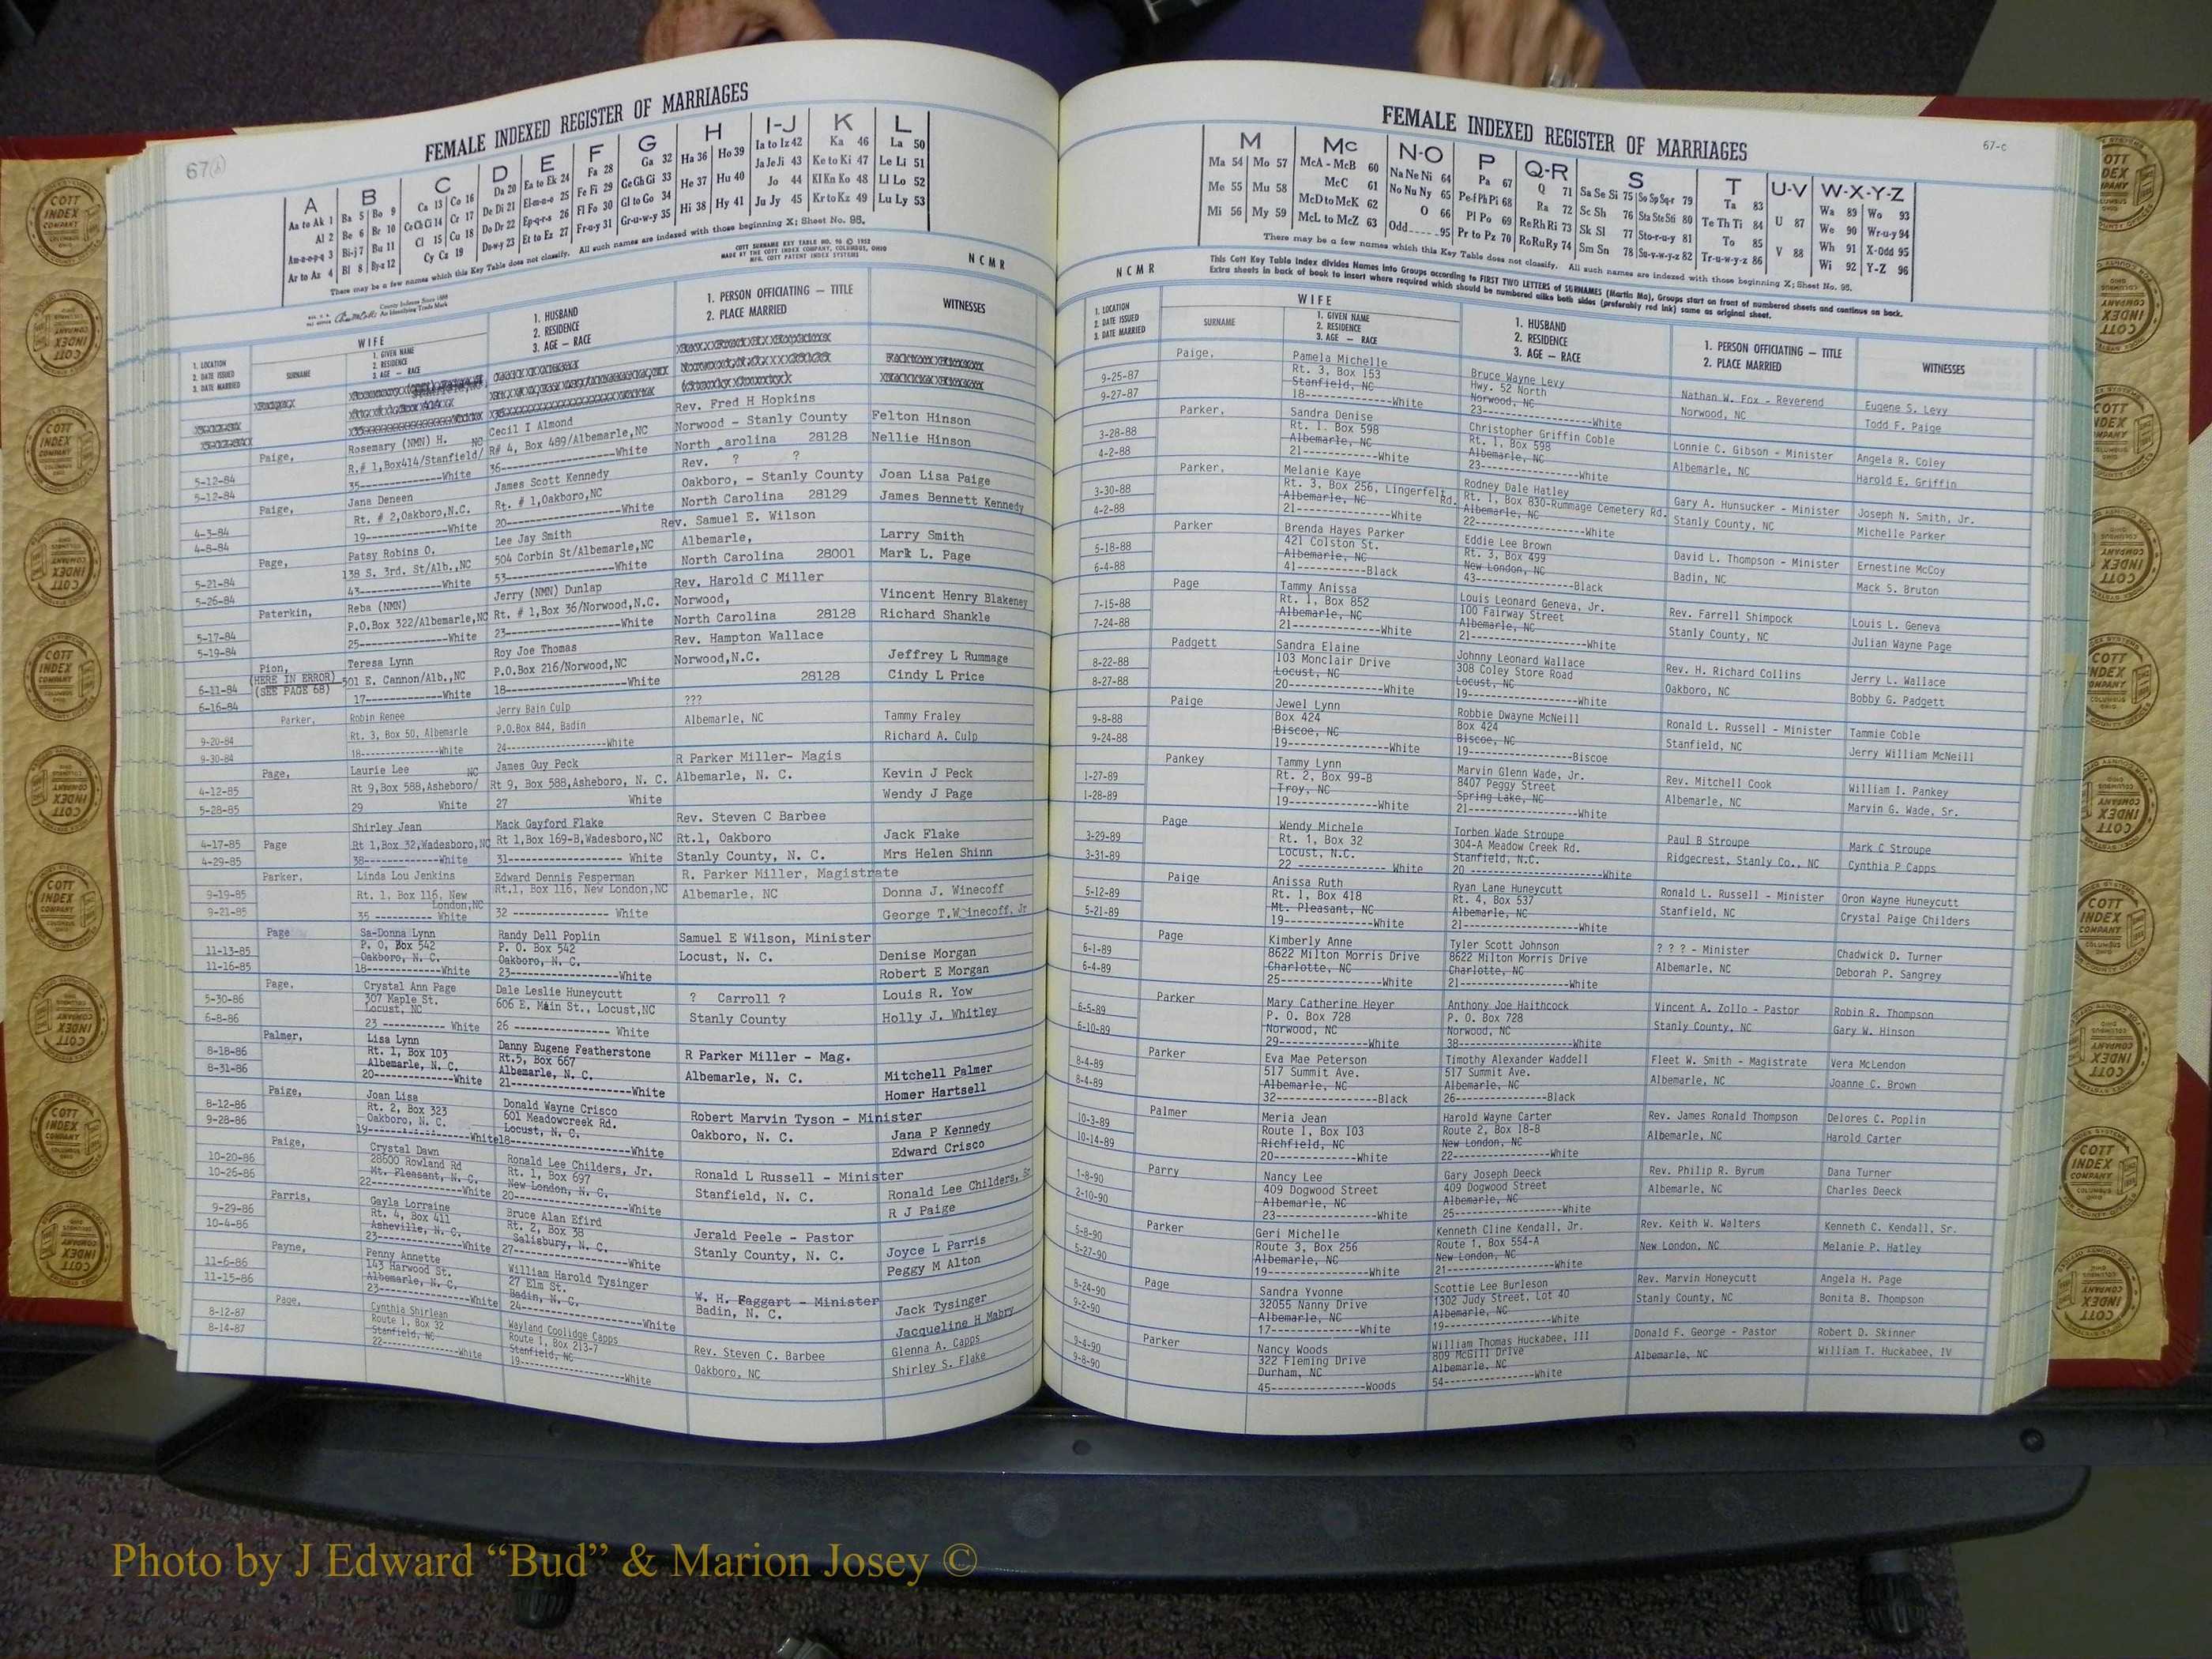 67(b)
FEMALE INDEXED REGISTER OF MARRIAGES
A B C D E F G H I-J K L
Aa to Ak 1 Ba 5 Bo 9 Ca 13 Co 16 Da 20 Ea to Ek 24 Fa 28 Ga 32 Ha 36 Ho 39 Ia to Iz 42 Ka 46 La 50
Al 2 Be 6 Br 10 Ce Ch Ci 14 Cr 17 De Di 21 El-m-n-o 25 Fe Fi 29 Ge Gh Gi 33 He 37 Hu 40 Ja Je Ji 43 Ke to Ki 47 Le Li 51
Am-n-o-p-q 3 Bi-j 7 Bu 11 Cl 15 Cu 18 Do Dr 22 Ep-q-r-s 26 Fl Fo 30 Gl to Go 34 Hi 38 Hy 41 Jo 44 Kl Kn Ko 48 Ll Lo 52
Ar to Az 4 Bl 8 By-z 12 Cy Cz 19 Du-w-y 23 Et to Ez 27 Fr-u-y 31 Gr-u-w-y 35 Ju Jy 45 Kr to Kz 49 Lu Ly 53
There may be a few names which this Key Table does not classify. All such names are indexed with those beginning X; Sheet No. 95.
COTT SURNAME KEY TABLE NO. 96 © 1952
MADE BY THE COTT INDEX COMPANY, COLUMBUS, OHIO
MFG. COTT PATENT INDEX SYSTEMS
N C M R
County Indexes Since 1888
An Identifying Trade Mark
1. LOCATION
2. DATE ISSUED
3. DATE MARRIED
WIFE
SURNAME
1. GIVEN NAME
2. RESIDENCE
3. AGE — RACE
1. HUSBAND
2. RESIDENCE
3. AGE — RACE
1. PERSON OFFICIATING — TITLE
2. PLACE MARRIED
WITNESSES
Paige, Rosemary (NMN) H. Cecil I Almond Rev. Fred H Hopkins
5-12-84 R.# 1,Box414/Stanfield/ NC R# 4, Box 489/Albemarle,NC Norwood - Stanly County Felton Hinson
5-12-84 35---White 36---White North arolina 28128 Nellie Hinson
Paige, Jana Deneen James Scott Kennedy Rev. ? ?
4-3-84 Rt. # 2,Oakboro,N.C. Rt. # 1,Oakboro,NC Oakboro, - Stanly County Joan Lisa Paige
4-8-84 19---White 20---White North Carolina 28129 James Bennett Kennedy
Page, Patsy Robins O. Lee Jay Smith Rev. Samuel E. Wilson
5-21-84 138 S. 3rd. St/Alb.,NC 504 Corbin St/Albemarle,NC Albemarle, Larry Smith
5-26-84 43---White 53---White North Carolina 28001 Mark L. Page
Paterkin, Reba (NMN) Jerry (NMN) Dunlap Rev. Harold C Miller
5-17-84 P.O.Box 322/Albemarle,NC Rt. # 1,Box 36/Norwood,N.C. Norwood, Vincent Henry Blakeney
5-19-84 25---White 23---White North Carolina 28128 Richard Shankle
Pion, Teresa Lynn Roy Joe Thomas Rev. Hampton Wallace
(HERE IN ERROR)
6-11-84 (SEE PAGE 68) 501 E. Cannon/Alb.,NC P.O.Box 216/Norwood,NC Norwood,N.C. Jeffrey L Rummage
6-16-84 17---White 18---White 28128 Cindy L Price
Parker, Robin Renee Jerry Bain Culp ???
9-20-84 Rt. 3, Box 50, Albemarle P.O.Box 844, Badin Albemarle, NC Tammy Fraley
9-30-84 18---White 24---White Richard A. Culp
Page, Laurie Lee James Guy Peck R Parker Miller- Magis
4-12-85 Rt 9,Box 588,Asheboro/ NC Rt 9, Box 588,Asheboro, N. C. Albemarle, N. C. Kevin J Peck
5-28-85 29 White 27 White Wendy J Page
Shirley Jean Mack Gayford Flake Rev. Steven C Barbee
4-17-85 Page Rt 1,Box 32,Wadesboro,NC Rt 1,Box 169-B,Wadesboro,NC Rt.1, Oakboro Jack Flake
4-29-85 38---White 31--- White Stanly County, N. C. Mrs Helen Shinn
Parker, Linda Lou Jenkins Edward Dennis Fesperman R. Parker Miller, Magistrate
9-19-85 Rt. 1, Box 116, New London,NC Rt.1, Box 116, New London,NC Albemarle, NC Donna J. Winecoff
9-21-85 35 --- White 32 --- White George T.Winecoff, Jr
Page Sa-Donna Lynn Randy Dell Poplin Samuel E Wilson, Minister
11-13-85 P. O, Box 542 P. O. Box 542 Locust, N. C. Denise Morgan
Oakboro, N. C. Oakboro, N. C.
11-16-85 18---White 23---White Robert E Morgan
Page, Crystal Ann Page Dale Leslie Huneycutt ? Carroll ? Louis R. Yow
5-30-86 307 Maple St. 606 E. Main St., Locust,NC
Locust, NC
6-8-86 23 --- White 26 --- White Stanly County Holly J. Whitley
Palmer, Lisa Lynn Danny Eugene Featherstone R Parker Miller - Mag.
8-18-86 Rt. 1, Box 103 Rt.5, Box 667 Mitchell Palmer
8-31-86 Albemarle, N. C. Albemarle, N. C. Albemarle, N. C. Homer Hartsell
20---White 21---White
Paige, Joan Lisa Donald Wayne Crisco Robert Marvin Tyson - Minister
8-12-86 Rt. 2, Box 323 601 Meadowcreek Rd. Jana P Kennedy
9-28-86 Oakboro, N. C. Locust, N. C. Oakboro, N. C. Edward Crisco
19---White 18---White
Paige, Crystal Dawn Ronald Lee Childers, Jr. Ronald L Russell - Minister
10-20-86 28600 Rowland Rd Rt. 1, Box 697 Ronald Lee Childers, Sr
10-26-86 Mt. Pleasant, N. C. New London, N. C. Stanfield, N. C. R J Paige
22---White 20---White
Parris, Gayla Lorraine Bruce Alan Efird Jerald Peele - Pastor
9-29-86 Rt. 4, Box 411 Rt. 2, Box 38 Joyce L Parris
10-4-86 Asheville, N. C. Salisbury, N. C. Stanly County, N. C. Peggy M Alton
23---White 27---White
Payne, Penny Annette William Harold Tysinger W. H. Faggart - Minister
11-6-86 143 Harwood St. 27 Elm St. Badin, N. C. Jack Tysinger
11-15-86 Albemarle, N. C. Badin, N. C. Jacqueline H Mabry
23---White 24---White
Page, Cynthia Shirlean Wayland Coolidge Capps Rev. Steven C. Barbee Glenna A. Capps
8-12-87 Route 1, Box 32 Route 1, Box 213-7
8-14-87 Stanfield, NC Stanfield, NC Oakboro, NC Shirley S. Flake
22---White 19---White
67-c
FEMALE INDEXED REGISTER OF MARRIAGES
M Mc N-O P Q-R S T U-V W-X-Y-Z
Ma 54 Mo 57 McA - McB 60 Na Ne Ni 64 Pa 67 Q 71 Sa Se Si 75 So Sp Sq-r 79 Ta 83 Wa 89 Wo 93
Me 55 Mu 58 McC 61 No Nu Ny 65 Pe-f Ph Pi 68 Ra 72 Sc Sh 76 Sta Ste Sti 80 Te Th Ti 84 U 87 We 90 Wr-u-y 94
Mi 56 My 59 McD to McK 62 O 66 Pl Po 69 Re Rh Ri 73 Sk Sl 77 Sto-r-u-y 81 To 85 Wh 91 X-Odd 95
McL to McZ 63 Odd 95 Pr to Pz 70 Ro Ru Ry 74 Sm Sn 78 Su-v-w-y-z 82 Tr-u-w-y-z 86 V 88 Wi 92 Y-Z 96
There may be a few names which this Key Table does not classify. All such names are indexed with those beginning X; Sheet No. 95.
N C M R
This Cott Key Table Index divides Names into Groups according to FIRST TWO LETTERS of SURNAMES (Martin Ma), Groups start on front of numbered sheets and continue on back.
Extra sheets in back of book to insert where required which should be numbered alike both sides (preferably red ink) same as original sheet.
1. LOCATION
2. DATE ISSUED
3. DATE MARRIED
WIFE
SURNAME
1. GIVEN NAME
2. RESIDENCE
3. AGE — RACE
1. HUSBAND
2. RESIDENCE
3. AGE — RACE
1. PERSON OFFICIATING — TITLE
2. PLACE MARRIED
WITNESSES
Paige, Pamela Michelle Bruce Wayne Levy
9-25-87 Rt. 3, Box 153 Hwy. 52 North Nathan W. Fox - Reverend Eugene S. Levy
9-27-87 Stanfield, NC Norwood, NC Norwood, NC Todd F. Paige
18---White 23---White
Parker, Sandra Denise Christopher Griffin Coble
3-28-88 Rt. 1. Box 598 Rt. 1, Box 598 Lonnie C. Gibson - Minister Angela R. Coley
4-2-88 Albemarle, NC Albemarle, NC Albemarle, NC Harold E. Griffin
21---White 23---White
Parker, Melanie Kaye Rodney Dale Hatley
3-30-88 Rt. 3, Box 256, Lingerfelt Rd. Rt. 1, Box 830-Rummage Cemetery Rd. Gary A. Hunsucker - Minister Joseph N. Smith, Jr.
4-2-88 Albemarle, NC Albemarle, NC Stanly County, NC Michelle Parker
21---White 22---White
Parker Brenda Hayes Parker Eddie Lee Brown
5-18-88 421 Colston St. Rt. 3, Box 499 David L. Thompson - Minister Ernestine McCoy
6-4-88 Albemarle, NC New London, NC Badin, NC Mack S. Bruton
41---Black 43---Black
Page Tammy Anissa Louis Leonard Geneva, Jr.
7-15-88 Rt. 1, Box 852 100 Fairway Street Rev. Farrell Shimpock Louis L. Geneva
7-24-88 Albemarle, NC Albemarle, NC Stanly County, NC Julian Wayne Page
21---White 21---White
Padgett Sandra Elaine Johnny Leonard Wallace
8-22-88 103 Monclair Drive 308 Coley Store Road Rev. H. Richard Collins Jerry L. Wallace
8-27-88 Locust, NC Locust, NC Oakboro, NC Bobby G. Padgett
20---White 19---White
Paige Jewel Lynn Robbie Dwayne McNeill
9-8-88 Box 424 Box 424 Ronald L. Russell - Minister Tammie Coble
9-24-88 Biscoe, NC Biscoe, NC Stanfield, NC Jerry William McNeill
19---White 19---Biscoe
Pankey Tammy Lynn Marvin Glenn Wade, Jr.
1-27-89 Rt. 2, Box 99-B 8407 Peggy Street Rev. Mitchell Cook William I. Pankey
1-28-89 Troy, NC Spring Lake, NC Albemarle, NC Marvin G. Wade, Sr.
19---White 21---White
Page Wendy Michele Torben Wade Stroupe
3-29-89 Rt. 1, Box 32 304-A Meadow Creek Rd. Paul B Stroupe Mark C Stroupe
3-31-89 Locust, N.C. Stanfield, N.C. Ridgecrest, Stanly Co., NC Cynthia P Capps
22 --- White 20 ---White
Paige Anissa Ruth Ryan Lane Huneycutt
5-12-89 Rt. 1, Box 418 Rt. 4, Box 537 Ronald L. Russell - Minister Oron Wayne Huneycutt
5-21-89 Mt. Pleasant, NC Albemarle, NC Stanfield, NC Crystal Paige Childers
19---White 21---White
Page Kimberly Anne Tyler Scott Johnson
6-1-89 8622 Milton Morris Drive 8622 Milton Morris Drive ? ? ? - Minister Chadwick D. Turner
6-4-89 Charlotte, NC Charlotte, NC Albemarle, NC Deborah P. Sangrey
25---White 21---White
Parker Mary Catherine Heyer Anthony Joe Haithcock Vincent A. Zollo - Pastor Robin R. Thompson
6-5-89 P. O. Box 728 P. O. Box 728
6-10-89 Norwood, NC Norwood, NC Stanly County, NC Gary W. Hinson
29---White 38---White
Parker Eva Mae Peterson Timothy Alexander Waddell Fleet W. Smith - Magistrate Vera McLendon
8-4-89 517 Summit Ave. 517 Summit Ave.
8-4-89 Albemarle, NC Albemarle, NC Albemarle, NC Joanne C. Brown
32---Black 26---Black
Palmer Meria Jean Harold Wayne Carter Rev. James Ronald Thompson Delores C. Poplin
10-3-89 Route 1, Box 103 Route 2, Box 18-B
10-14-89 Richfield, NC New London, NC Albemarle, NC Harold Carter
20---White 22---White
Parry Nancy Lee Gary Joseph Deeck Rev. Philip R. Byrum Dana Turner
1-8-90 409 Dogwood Street 409 Dogwood Street
2-10-90 Albemarle, NC Albemarle, NC Albemarle, NC Charles Deeck
23---White 25---White
Parker Geri Michelle Kenneth Cline Kendall, Jr. Rev. Keith W. Walters Kenneth C. Kendall, Sr.
5-8-90 Route 3, Box 256 Route 1, Box 554-A
5-27-90 Albemarle, NC New London, NC New London, NC Melanie P. Hatley
19---White 21---White
Page Sandra Yvonne Scottie Lee Burleson Rev. Marvin Honeycutt Angela H. Page
8-24-90 32055 Nanny Drive 1302 Judy Street, Lot 40
9-2-90 Albemarle, NC Albemarle, NC Stanly County, NC Bonita B. Thompson
17---White 19---White
Parker Nancy Woods William Thomas Huckabee, III Donald F. George - Pastor Robert D. Skinner
9-4-90 322 Fleming Drive 809 McGill Drive
9-8-90 Durham, NC Albemarle, NC Albemarle, NC William T. Huckabee, IV
45---Woods 54---White
COTT INDEX COMPANY COLUMBUS OHIO
Photo by J Edward “Bud” & Marion Josey ©